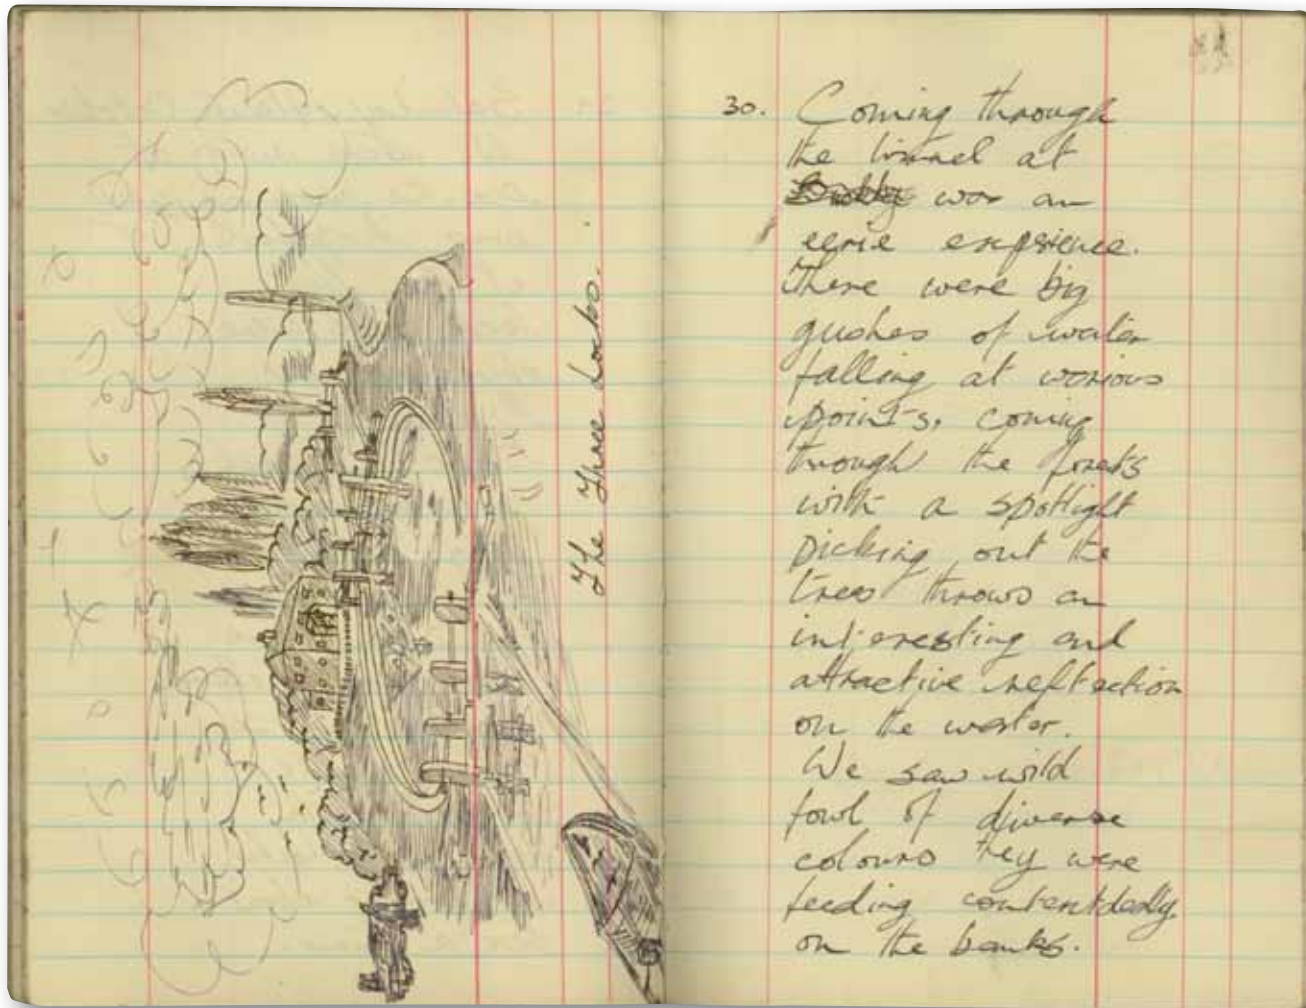 The Three Locks.
30. Coming through
the tunnel at
was an
eerie experience.
There were big
gushes of water
falling at various
points, coming
through the
with a spotlight
picking out the
trees throws an
interesting and
attractive reflection
on the water.
We saw wild
fowl of diverse
colours they were
feeding contentdedly
on the banks.